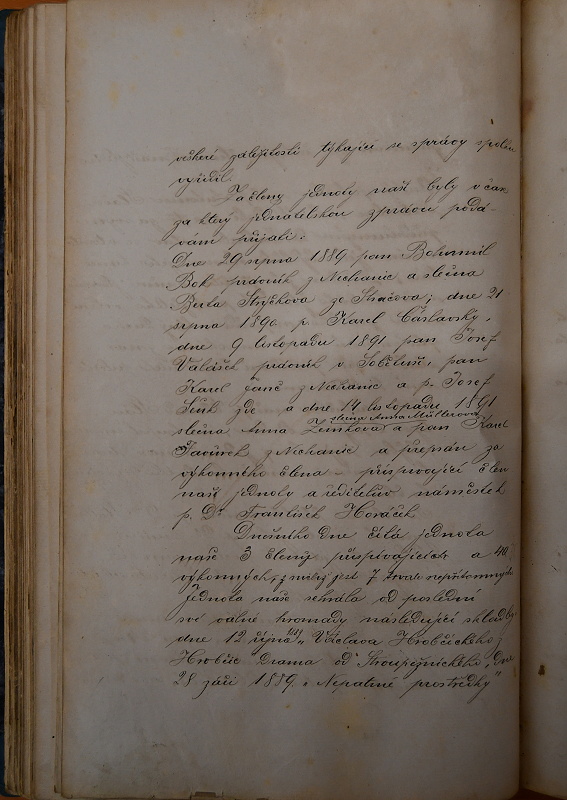 veškeré záležitosti týkající se správy spolku
vyřídil.
Za členy jednoty naší byly v čas
za který jednatelskou zprávu podá-
vám přijati:
Dne 29 srpna 1889 pan Bohumil
Bok z Nechanic a slečna
Berta Strýčkova ze Stračova; dne 21
srpna 1890 p. Karel Čáslavský,
dne 9 listopadu 1891 pan Josef
Valášek v Sobětuši, pan
Karel z Nechanic a p. Josef
zde a dne 14 listopadu 1891
slečna Anna Müllerova
slečna Anna Zemkova a pan Karel
z Nechanic a přepsán za
výkonného člena přispívající člen
naší jednoty a ředitelův náměstek
p. Dr František Horáček
Dnešního dne čítá jednota
naše 3 členy přispívajících a 40
výkonných, z nichž jest 7 trvale nepřítomných
Jednota naše sehrála od poslední
své valné hromady následující skladby
dne 12 října „Václava Hrobčického z
Hrobčic Drama od Stroupežnického, dne
28 září 1889 „Nepatrné prostředky"